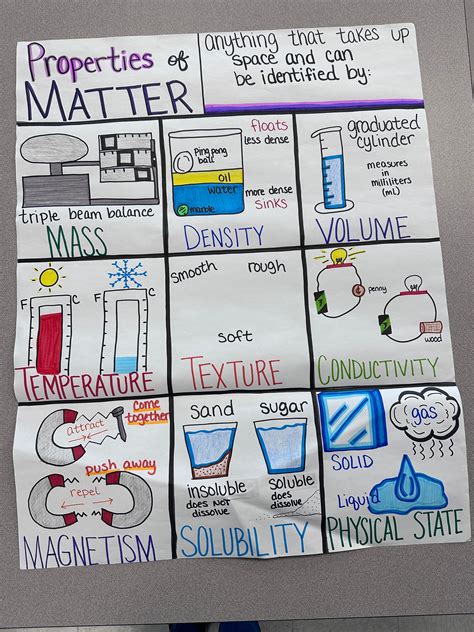 Properties of
MATTER
anything that takes up
space and can
be identified by:
triple beam balance
MASS
Ping pong
ball
oil
water
marble
floats
less dense
more dense
sinks
DENSITY
graduated
cylinder
measures
in
milliliters
(mL)
VOLUME
F C
F C
TEMPERATURE
smooth rough
soft
TEXTURE
penny
wood
CONDUCTIVITY
attract
come
together
push away
repel
MAGNETISM
sand
insoluble
does NOT
dissolve
sugar
soluble
does
dissolve
SOLUBILITY
SOLID
gas
Liquid
PHYSICAL STATE